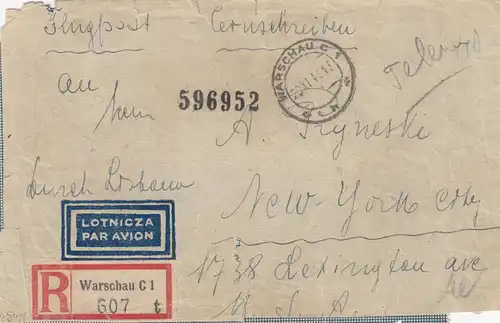 Flugpost Fernschreiben
WARSCHAU C 1
An
596952
Herrn A.
Durch Lisbona
NEW-YORK City
LOTNICZA
PAR AVION
1738 Lexington ave
R Warschau C 1
607 t
U. S. A.